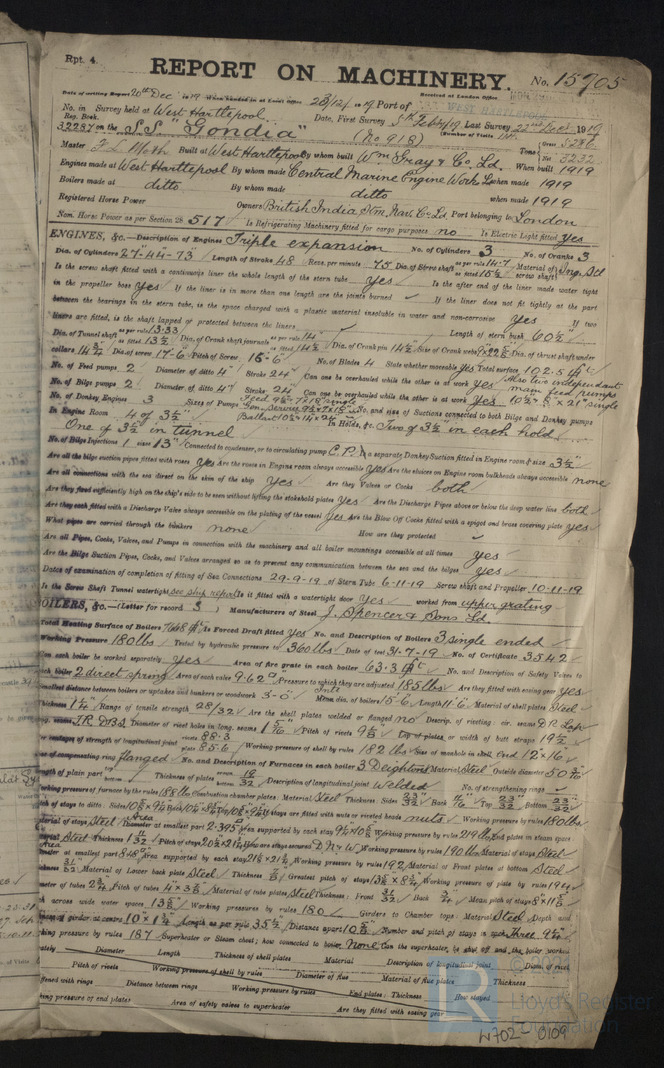 Rpt. 4.
REPORT ON MACHINERY.
No. 15705
Date of writing Report 20th Dec 1919 When handed in at Local Office 23/12/1919 Port of WEST HARTLEPOOL
Received at London Office
No. in Survey held at West Hartlepool Date, First Survey 5th Feb 1919 Last Survey 22nd Dec 1919
Reg. Book. (Number of Visits
32287 on the S.S. "Gondia" (No 918) Tons Gross 5286 Net 3232
Master F. L. Moth Built at West Hartlepool By whom built Wm Gray & Co. Ld. When built 1919
Engines made at West Hartlepool By whom made Central Marine Engine Works Ld when made 1919
Boilers made at ditto By whom made ditto when made 1919
Registered Horse Power Owners British India Stm. Nav. Co Ld. Port belonging to London
Nom. Horse Power as per Section 28 517 Is Refrigerating Machinery fitted for cargo purposes no Is Electric Light fitted yes
ENGINES, &c.—Description of Engines Triple expansion No. of Cylinders 3 No. of Cranks 3
Dia. of Cylinders 27"-44"-73" Length of Stroke 48 Revs. per minute 75 Dia. of Screw shaft as per rule 14.7 as fitted 15½ Material of screw shaft Ing. Stl
Is the screw shaft fitted with a continuous liner the whole length of the stern tube yes Is the after end of the liner made water tight
in the propeller boss yes If the liner is in more than one length are the joints burned If the liner does not fit tightly at the part
between the bearings in the stern tube, is the space charged with a plastic material insoluble in water and non-corrosive yes If two
liners are fitted, is the shaft lapped or protected between the liners Length of stern bush 60½"
Dia. of Tunnel shaft as per rule 13.33 as fitted 13½ Dia. of Crank shaft journals as per rule 14" as fitted 14½ Dia. of Crank pin 14½ Size of Crank webs 9"x22½ Dia. of thrust shaft under
collars 14¾ Dia. of screw 17-6 Pitch of Screw 16-6 No. of Blades 4 State whether moveable yes Total surface 102.5 ft
No. of Feed pumps 2 Diameter of ditto 4" Stroke 24" Can one be overhauled while the other is at work yes Also two independent main feed pumps
No. of Bilge pumps 2 Diameter of ditto 4" Stroke 24 Can one be overhauled while the other is at work yes
No. of Donkey Engines 3 Sizes of Pumps No. and size of Suctions connected to both Bilge and Donkey pumps
In Engine Room 4 of 3½" In Holds, &c. Two of 3½" in each hold
One of 3½ in tunnel
No. of Bilge Injections 1 sizes 13" Connected to condenser, or to circulating pump C.P. Is a separate Donkey Suction fitted in Engine room & size 3½"
Are all the bilge suction pipes fitted with roses yes Are the roses in Engine room always accessible yes Are the sluices on Engine room bulkheads always accessible none
Are all connections with the sea direct on the skin of the ship yes Are they Valves or Cocks both
Are they fixed sufficiently high on the ship's side to be seen without lifting the stokehold plates yes Are the Discharge Pipes above or below the deep water line both
Are they each fitted with a Discharge Valve always accessible on the plating of the vessel yes Are the Blow Off Cocks fitted with a spigot and brass covering plate yes
What pipes are carried through the bunkers none How are they protected
Are all Pipes, Cocks, Valves, and Pumps in connection with the machinery and all boiler mountings accessible at all times yes
Are the Bilge Suction Pipes, Cocks, and Valves arranged so as to prevent any communication between the sea and the bilges yes
Dates of examination of completion of fitting of Sea Connections 29-9-19 of Stern Tube 6-11-19 Screw shaft and Propeller 10-11-19
Is the Screw Shaft Tunnel watertight see ship report Is it fitted with a watertight door yes worked from upper grating
BOILERS, &c.—(Letter for record S) Manufacturers of Steel J. Spencer & Sons Ld.
Total Heating Surface of Boilers 7648 ft Is Forced Draft fitted yes No. and Description of Boilers 3 single ended
Working Pressure 180 lbs Tested by hydraulic pressure to 360 lbs Date of test 31-7-19 No. of Certificate 3542
Can each boiler be worked separately yes Area of fire grate in each boiler 63.3 ft No. and Description of Safety Valves to
each boiler 2 direct spring Area of each valve 9.62 Pressure to which they are adjusted 185 lbs Are they fitted with easing gear yes
Smallest distance between boilers or uptakes and bunkers or woodwork 3-0 Mean dia. of boilers 15-6 Length 11'6 Material of shell plates Steel
Thickness Range of tensile strength 28/32 Are the shell plates welded or flanged no Descrip. of riveting: cir. seams D.R. Lap
long. seams T.R. D.B.S. Diameter of rivet holes in long. seams 1 5/16 Pitch of rivets 9⅛ Lap of plates or width of butt straps 19½
centages of strength of longitudinal joint rivets 88.3 plate 85.6 Working pressure of shell by rules 182 lbs Size of manhole in shell End 12"x16"
Size of compensating ring flanged No. and Description of Furnaces in each boiler 3 Deightons Material Steel Outside diameter
Length of plain part Thickness of plates Description of longitudinal joint welded No. of strengthening rings
Working pressure of furnace by the rules 188 lbs Combustion chamber plates: Material Steel Thickness: Sides 23/32 Back Top 23/32 Bottom 23/32
If stays are fitted with nuts or riveted heads nuts Working pressure by rules 180 lbs
Material of stays Steel Area at smallest part 2.395 Area supported by each stay Working pressure by rules 219 lbs End plates in steam space
Material Steel Thickness 1 11/32 Pitch of stays How are stays secured D.N & W Working pressure by rules 190 lbs Material of stays Steel
Area supported by each stay Working pressure by rules 192 Material of Front plates at bottom Steel
Material of Lower back plate Steel Thickness Greatest pitch of stays Working pressure of plate by rules 194
Diameter of tubes 2¾ Pitch of tubes Material of tube plates Steel Thickness: Front 31/32 Back ¾ Mean pitch of stays
Pitch across wide water spaces Working pressures by rules 180 Girders to Chamber tops: Material Steel Depth and
thickness of girder at centre Length as per rule Distance apart Number and pitch of stays in each Three
Working pressure by rules 187 Superheater or Steam chest; how connected to boiler None Can the superheater be shut off and the boiler worked
separately Diameter Length Thickness of shell plates Material Description of longitudinal joint Diam. of rivet
Pitch of rivets Working pressure of shell by rules Diameter of flue Material of flue plates Thickness
stiffened with rings Distance between rings Working pressure by rules End plates: Thickness How stayed
Working pressure of end plates Area of safety valves to superheater Are they fitted with easing gear
LR © 2021
Lloyd's Register
Foundation
W702-0109